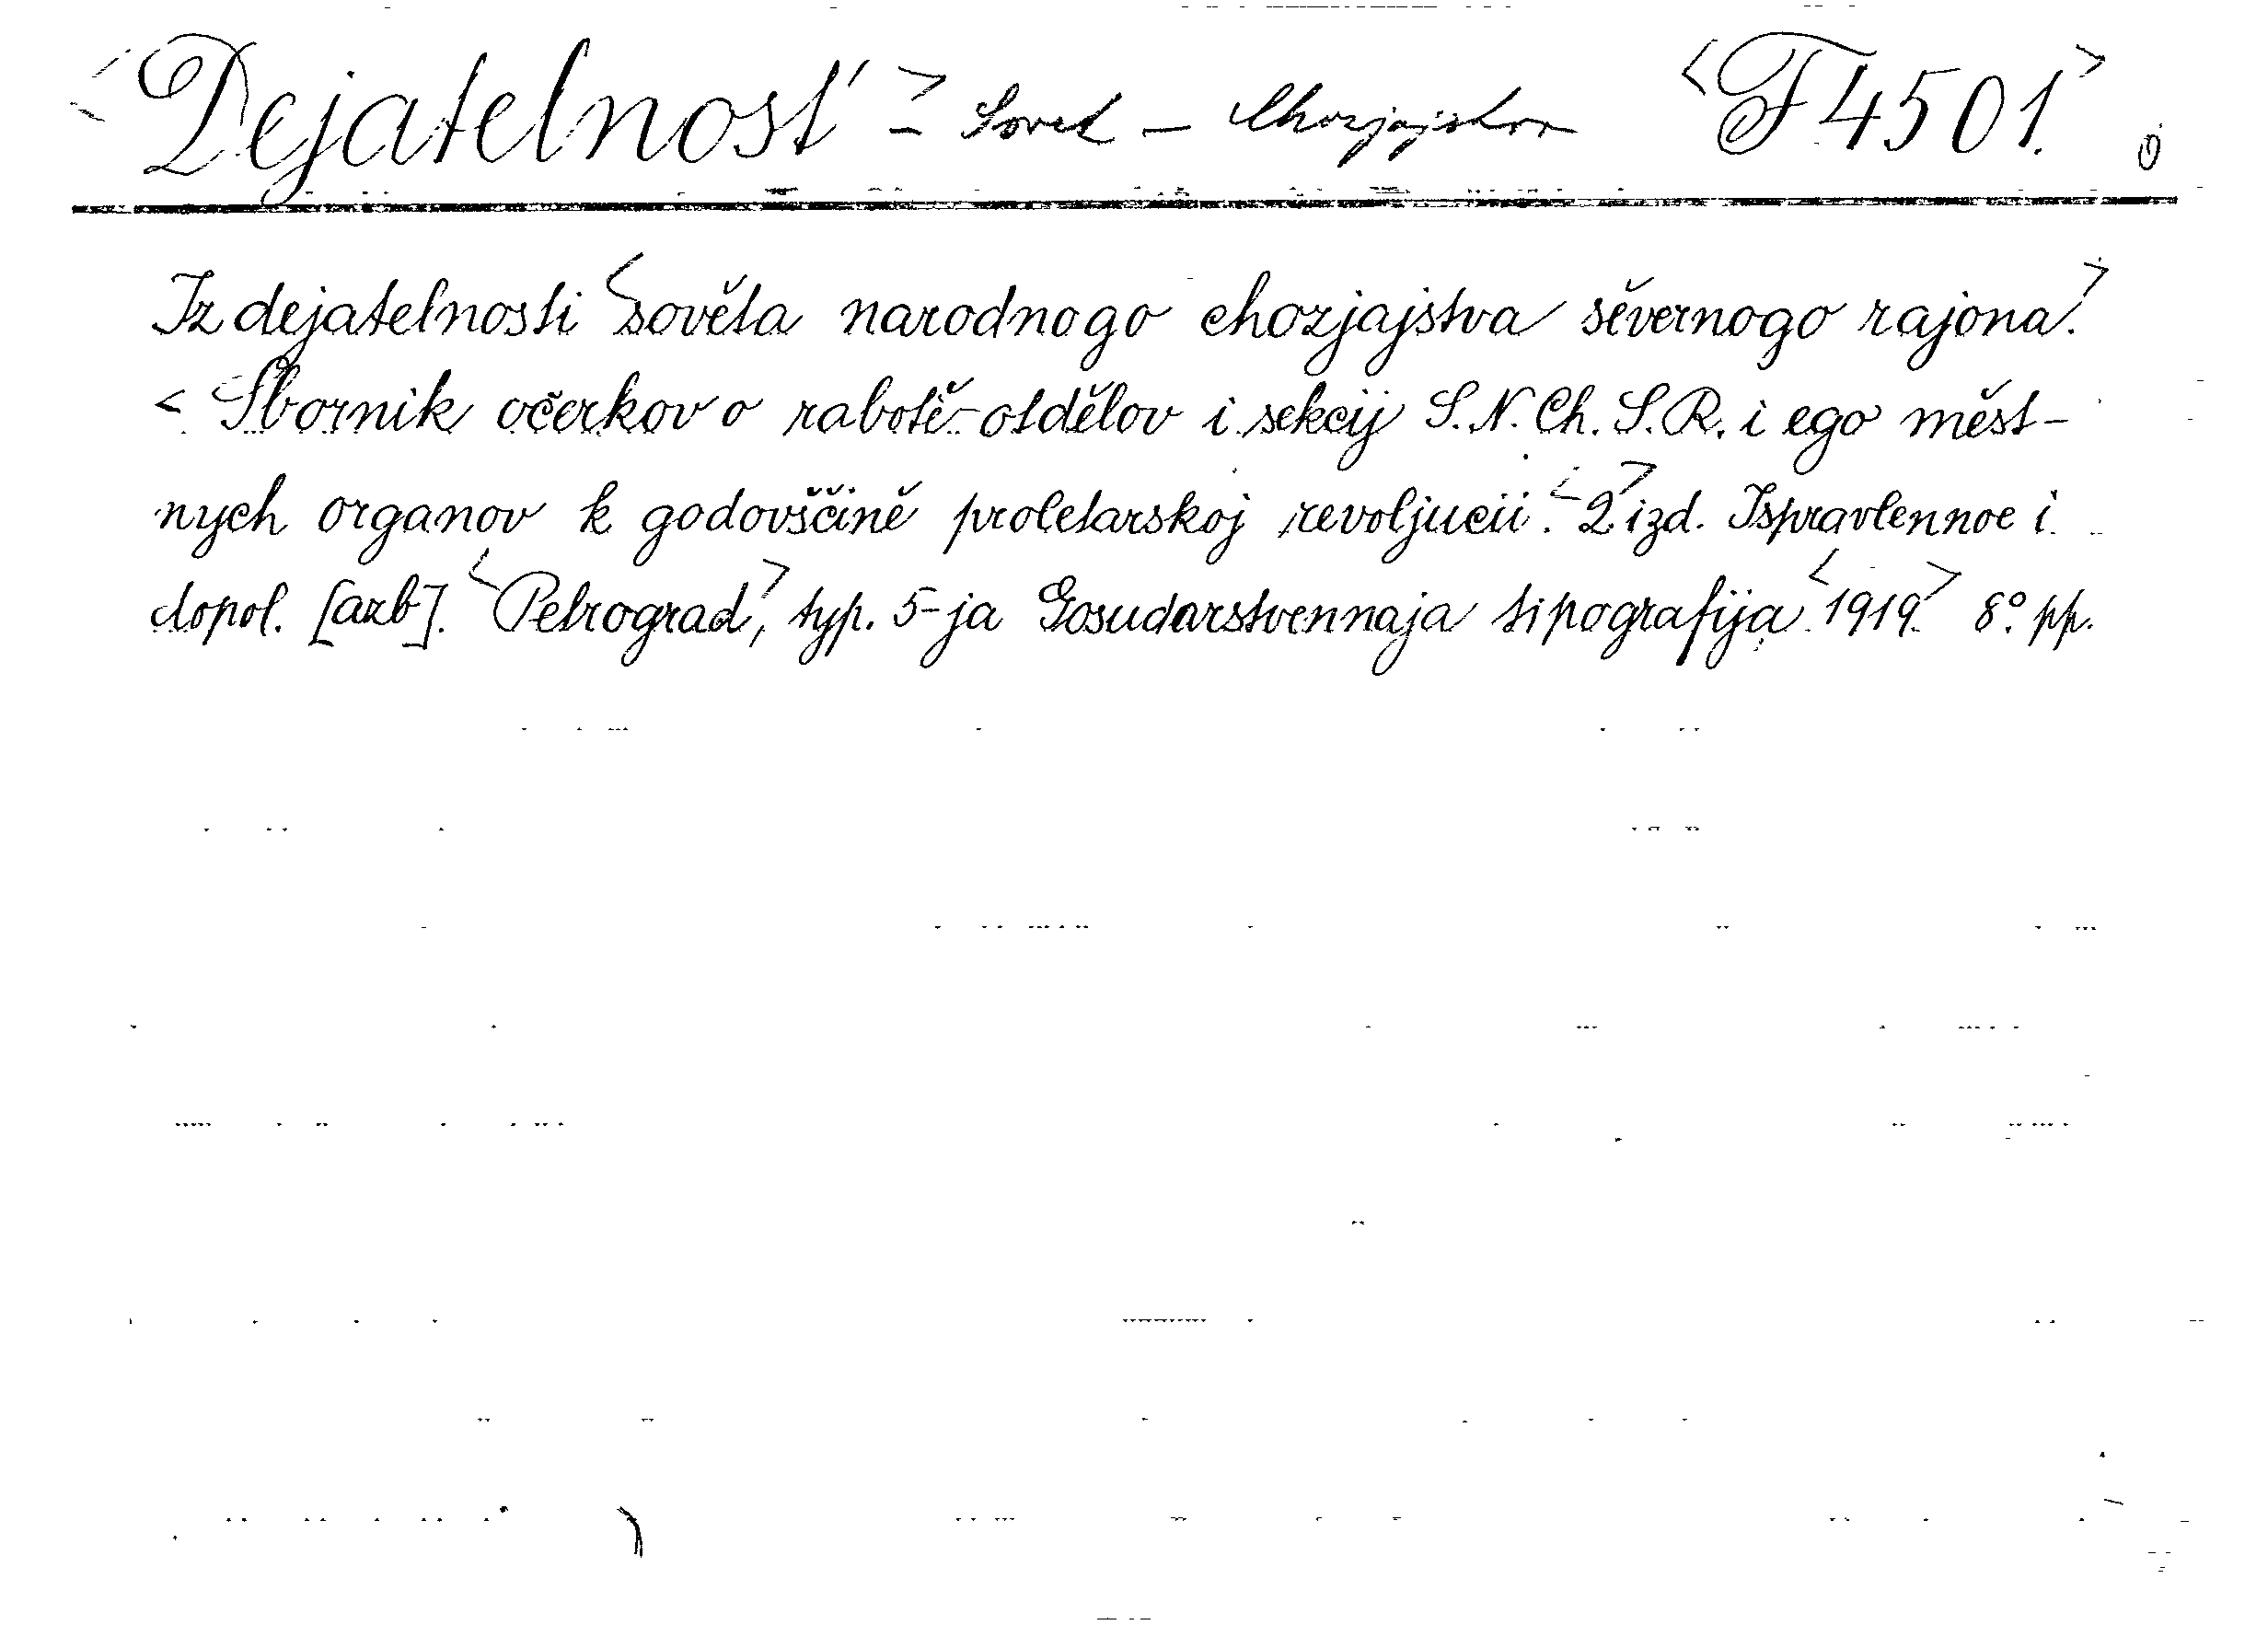 <Dejatelnost'> = Sovět – Chozjajstvo <F 4501.>
Iz dejatelnosti <sověta narodnogo chozjajstva sěvernogo rajona.>
< Sbornik očerkov o rabotě otdělov i sekcij S. N. Ch. S. R. i ego měst-
nych organov k godovščině proletarskoj revoljucii. <2> izd. Ispravlennoe i
dopol. [azb]. <Petrograd,> typ. 5-ja Gosudarstvennaja tipografija <1919.> 8º. pp.